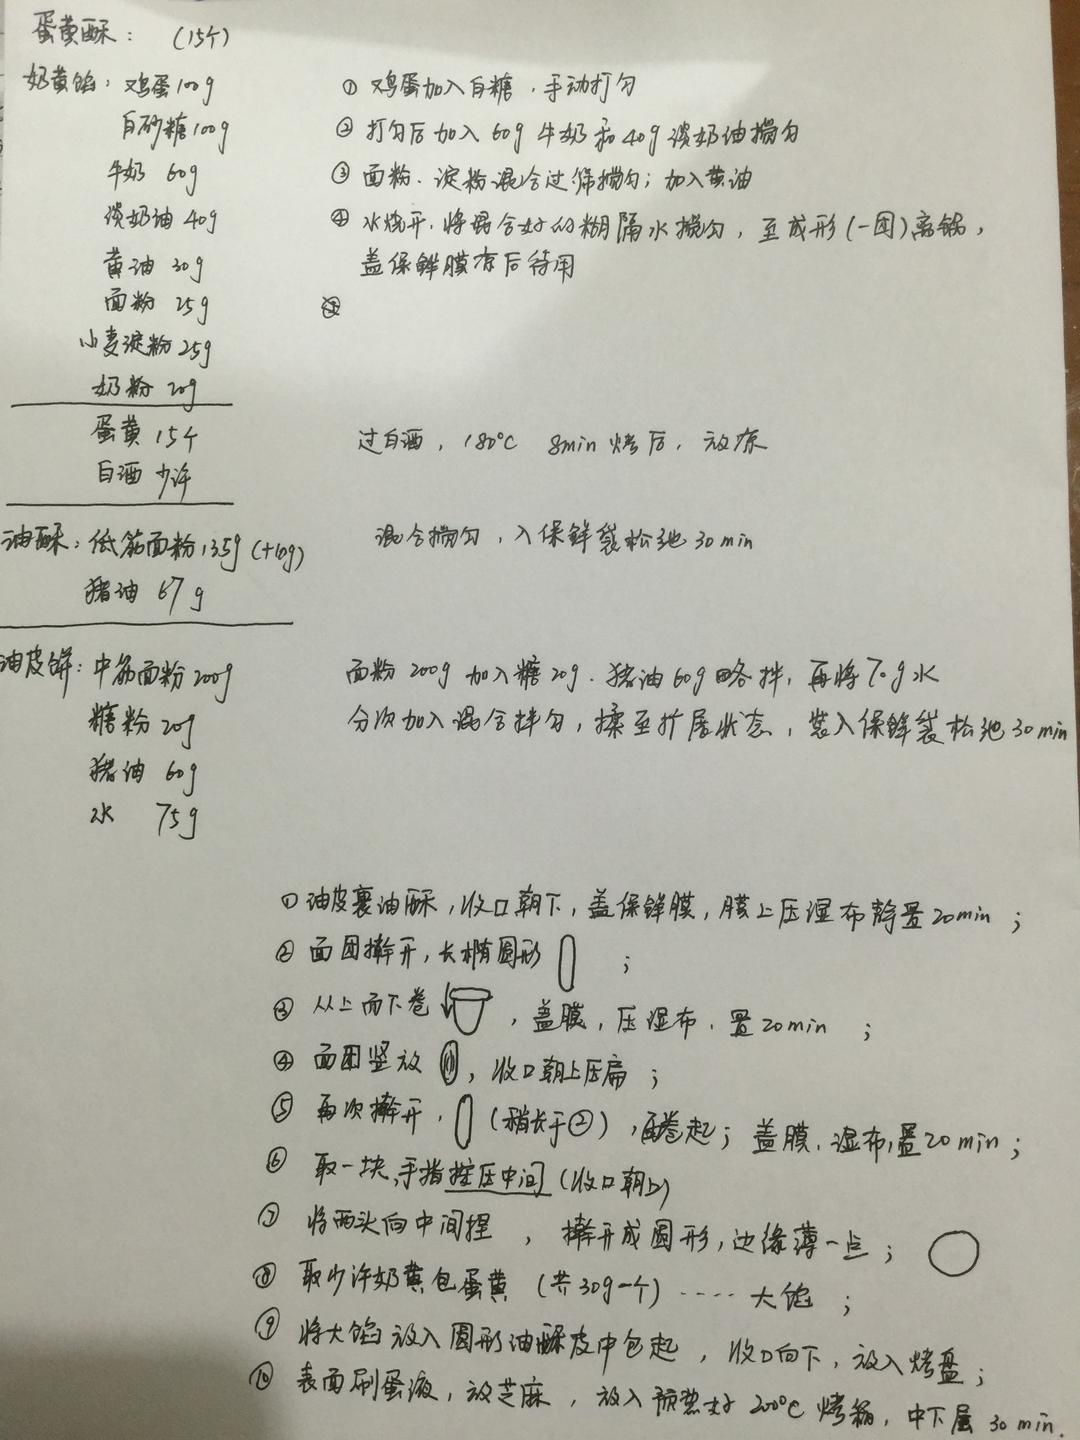 蛋黄酥：（15个）
奶黄馅：鸡蛋100g
① 鸡蛋加入白糖，手动打匀
白砂糖100g
② 打匀后加入60g牛奶和40g淡奶油搅匀
牛奶 60g
③ 面粉、淀粉混合过筛搅匀；加入黄油
淡奶油 40g
④ 水烧开，将混合好的糊隔水搅匀，至成形(一团)离锅，
黄油 30g
盖保鲜膜存后待用
面粉 25g
小麦淀粉 25g
奶粉 20g
蛋黄 15个
过白酒，180℃ 8min 烤后，放凉
白酒 少许
油酥：低筋面粉135g(+10g)
混合搅匀，入保鲜袋松弛30min
猪油 67g
油皮饼：中筋面粉200g
面粉200g加入糖20g、猪油60g略拌，再将70g水
糖粉 20g
分次加入混合拌匀，揉至扩展状态，装入保鲜袋松弛30min
猪油 60g
水 75g
① 油皮裹油酥，收口朝下，盖保鲜膜，膜上压湿布静置20min；
② 面团擀开，长椭圆形；
③ 从上而下卷，盖膜，压湿布，置20min；
④ 面团竖放，收口朝上压扁；
⑤ 再次擀开，(稍长于②)，再卷起；盖膜，湿布，置20min；
⑥ 取一块，手指按压中间(收口朝上)
⑦ 将两头向中间捏，擀开成圆形，边缘薄一点；
⑧ 取少许奶黄包蛋黄（共30g一个）····大馅；
⑨ 将大馅放入圆形油酥皮中包起，收口向下，放入烤盘；
⑩ 表面刷蛋液，放芝麻，放入预热好200℃烤箱，中下层30min.